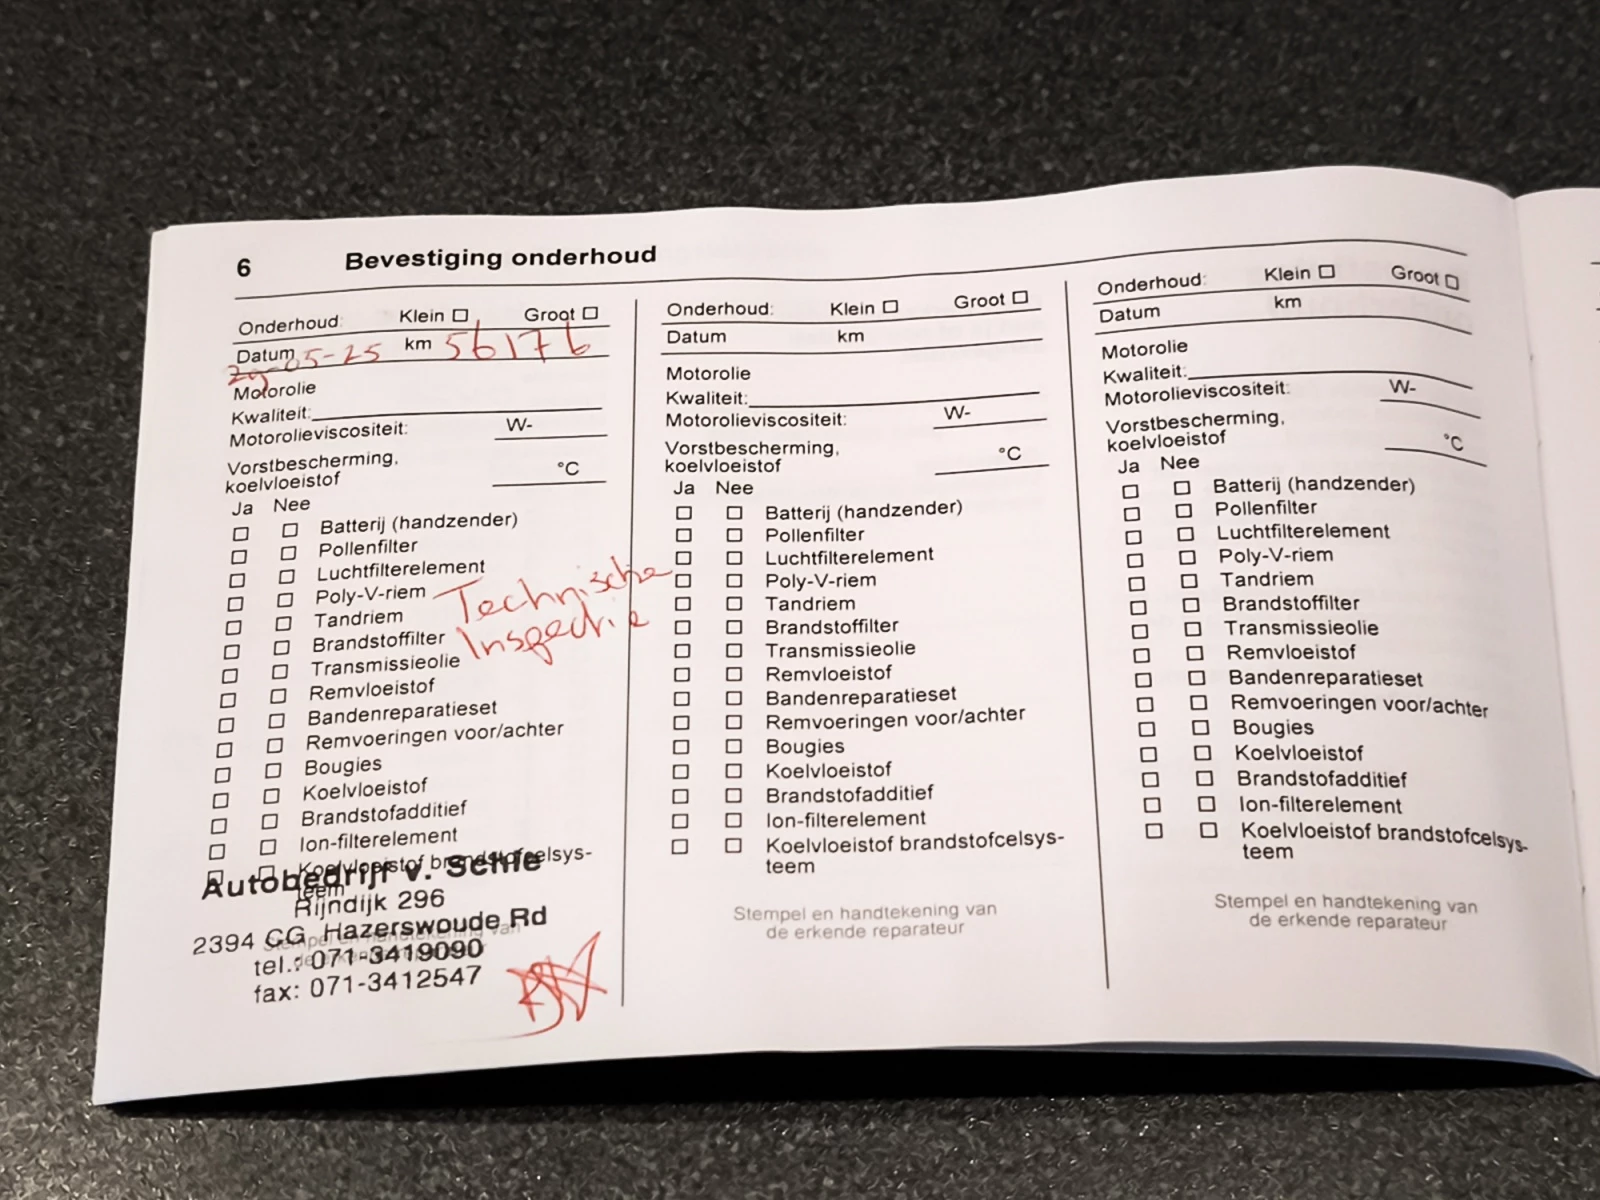 6 Bevestiging onderhoud
Onderhoud: Klein Groot
Datum 29-05-25 km 56176
Motorolie
Kwaliteit:
Motorolieviscositeit: W-
Vorstbescherming,
koelvloeistof °C
Ja Nee
Batterij (handzender)
Pollenfilter
Luchtfilterelement
Poly-V-riem
Tandriem
Brandstoffilter
Transmissieolie
Remvloeistof
Bandenreparatieset
Remvoeringen voor/achter
Bougies
Koelvloeistof
Brandstofadditief
Ion-filterelement
Koelvloeistof brandstofcelsys-
teem
Technische
Inspectie
Stempel en handtekening van
de erkende reparateur
Autobedrijf v. Schie
Rijndijk 296
2394 CG Hazerswoude Rd
tel.: 071-3419090
fax: 071-3412547
Onderhoud: Klein Groot
Datum km
Motorolie
Kwaliteit:
Motorolieviscositeit: W-
Vorstbescherming,
koelvloeistof °C
Ja Nee
Batterij (handzender)
Pollenfilter
Luchtfilterelement
Poly-V-riem
Tandriem
Brandstoffilter
Transmissieolie
Remvloeistof
Bandenreparatieset
Remvoeringen voor/achter
Bougies
Koelvloeistof
Brandstofadditief
Ion-filterelement
Koelvloeistof brandstofcelsys-
teem
Stempel en handtekening van
de erkende reparateur
Onderhoud: Klein Groot
Datum km
Motorolie
Kwaliteit:
Motorolieviscositeit: W-
Vorstbescherming,
koelvloeistof °C
Ja Nee
Batterij (handzender)
Pollenfilter
Luchtfilterelement
Poly-V-riem
Tandriem
Brandstoffilter
Transmissieolie
Remvloeistof
Bandenreparatieset
Remvoeringen voor/achter
Bougies
Koelvloeistof
Brandstofadditief
Ion-filterelement
Koelvloeistof brandstofcelsys-
teem
Stempel en handtekening van
de erkende reparateur